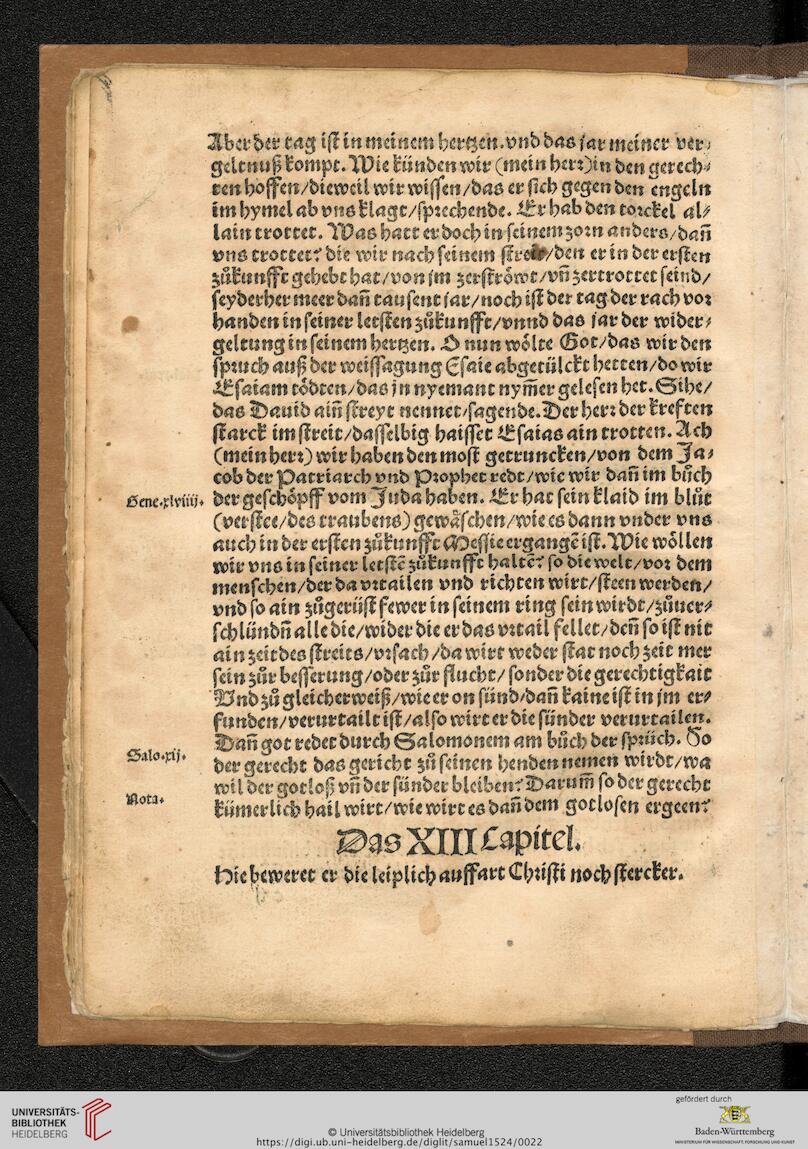 Aber der tag ist in meinem hertzen. vnd das jar meiner ver⸗
geltnuß kompt. Wie künden wir (mein herr) in den gerech⸗
ten hoffen/dieweil wir wissen/das er sich gegen den engeln
im hymel ab vns klagt/sprechende. Er hab den torckel al⸗
lain trottet. Was hatt er doch in seinem zorn anders/dañ
vns trottet? die wir nach seinem streit/den er in der ersten
zůkunfft gehebt hat/von jm zerströwt/vñ zertrottet seind/
seyderher meer dañ tausent jar/noch ist der tag der rach vor
handen in seiner letsten zůkunfft/vnnd das jar der wider⸗
geltung in seinem hertzen. O nun wölte Got/das wir den
spruch auß der weissagung Esaie abgetülckt hetten/do wir
Esaiam tödten/das jn nyemant nym̃er gelesen het. Sihe/
das Dauid aiñ streyt nennet/sagende. Der herr der kreften
starck im streit/dasselbig haisset Esaias ain trotten. Ach
(mein herr) wir haben den most getruncken/von dem Ja⸗
cob der Patriarch vnd Prophet redt/wie wir dañ im bůch
Gene.xlviiij. der geschöpff vom Juda haben. Er hat sein klaid im blůt
(verstee/des traubens) gewäschen/wie es dann vnder vns
auch in der ersten zůkunfft Messie ergangẽ ist. Wie wöllen
wir vns in seiner letstẽ zůkunfft haltẽ? so die welt/vor dem
menschen/der da vrtailen vnd richten wirt/steen werden/
vnd so ain zůgerüst fewer in seinem ring sein wirdt/zůuer⸗
schlündñ alle die/wider die er das vrtail fellet/deñ so ist nit
ain zeit des streits/vrsach/da wirt weder stat noch zeit mer
sein zůr besserung/oder zůr flucht/sonder die gerechtigkait
Vnd zů gleicherweiß/wie er on sünd/dañ kaine ist in jm er⸗
funden/verurtailt ist/also wirt er die sünder verurtailen.
Dañ got redet durch Salomonem am bůch der sprüch. So
Salo.xij. der gerecht das gericht zů seinen henden nemen wirdt/wa
wil der gotloß vñ der sünder bleiben? Darum̃ so der gerecht
Nota. kümerlich hail wirt/wie wirt es dañ dem gotlosen ergeen?
Das XIII Capitel.
Hie beweret er die leiplich auffart Christi noch stercker.
UNIVERSITÄTS-
BIBLIOTHEK
HEIDELBERG
© Universitätsbibliothek Heidelberg
https://digi.ub.uni-heidelberg.de/diglit/samuel1524/0022
gefördert durch
Baden-Württemberg
MINISTERIUM FÜR WISSENSCHAFT, FORSCHUNG UND KUNST